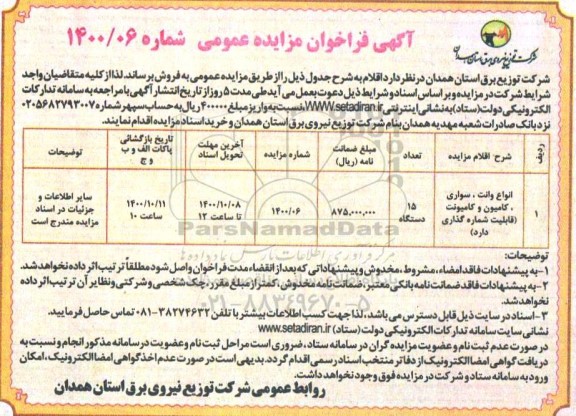 آگهی فراخوان مزایده عمومی شماره ۱۴۰۰/۰۶
شرکت توزیع نیروی برق استان همدان
شرکت توزیع برق استان همدان در نظر دارد اقلام به شرح جدول ذیل را از طریق مزایده عمومی به فروش برساند. لذا از کلیه متقاضیان واجد
شرایط شرکت در مزایده و بر اساس اسناد و شرایط ذیل دعوت بعمل می آید طی مدت ۵ روز از تاریخ انتشار آگهی با مراجعه به سامانه تدارکات
الکترونیکی دولت (ستاد) به نشانی اینترنتی WWW.setadiran.ir نسبت به واریز مبلغ ۴۰۰۰۰۰ ریال به حساب سپهر شماره ۰۲۰۵۶۸۲۷۹۳۰۰۷
نزد بانک صادرات شعبه مهدیه همدان بنام شرکت توزیع نیروی برق استان همدان و خرید اسناد مزایده اقدام نمایند.
ردیف
شرح اقلام مزایده
تعداد
مبلغ ضمانت نامه (ریال)
شماره مزایده
آخرین مهلت تحویل اسناد
تاریخ بازگشائی پاکات الف و ب و ج
توضیحات
۱
انواع وانت ، سواری ، کامیون و کامیونت (قابلیت شماره گذاری دارد)
۱۵ دستگاه
۸۷۵,۰۰۰,۰۰۰
۱۴۰۰/۰۶
۱۴۰۰/۱۰/۰۸ تا ساعت ۱۲
۱۴۰۰/۱۰/۱۱ ساعت ۱۰
سایر اطلاعات و جزئیات در اسناد مزایده مندرج است
ParsNamadData
۰۲۱-۸۸۳۴۹۶۷۰-۵
توضیحات:
۱- به پیشنهادات فاقد امضاء، مشروط، مخدوش و پیشنهاداتی که بعد از انقضاء مدت فراخوان واصل شود مطلقاً ترتیب اثر داده نخواهد شد.
۲- به پیشنهادات فاقد ضمانت نامه بانکی معتبر، ضمانت نامه مخدوش، کمتر از مبلغ مقرر، چک شخصی و شرکتی و نظایر آن ترتیب اثر داده
نخواهد شد.
۳- اسناد در سایت ذیل قابل دسترس می باشد، لذا جهت کسب اطلاعات بیشتر با تلفن ۳۸۲۷۴۶۳۲-۰۸۱ تماس حاصل فرمایید.
نشانی سایت سامانه تدارکات الکترونیکی دولت (ستاد) www.setadiran.ir
در صورت عدم ثبت نام و عضویت مزایده گران در سامانه ستاد، ضروری است مراحل ثبت نام و عضویت در سامانه مذکور انجام و نسبت به
دریافت گواهی امضا الکترونیک از دفاتر منتخب اسناد رسمی اقدام گردد. بدیهی است در صورت عدم اخذ گواهی امضا الکترونیک، امکان
ورود به سامانه ستاد و شرکت در مزایده فوق وجود نخواهد داشت.
روابط عمومی شرکت توزیع نیروی برق استان همدان